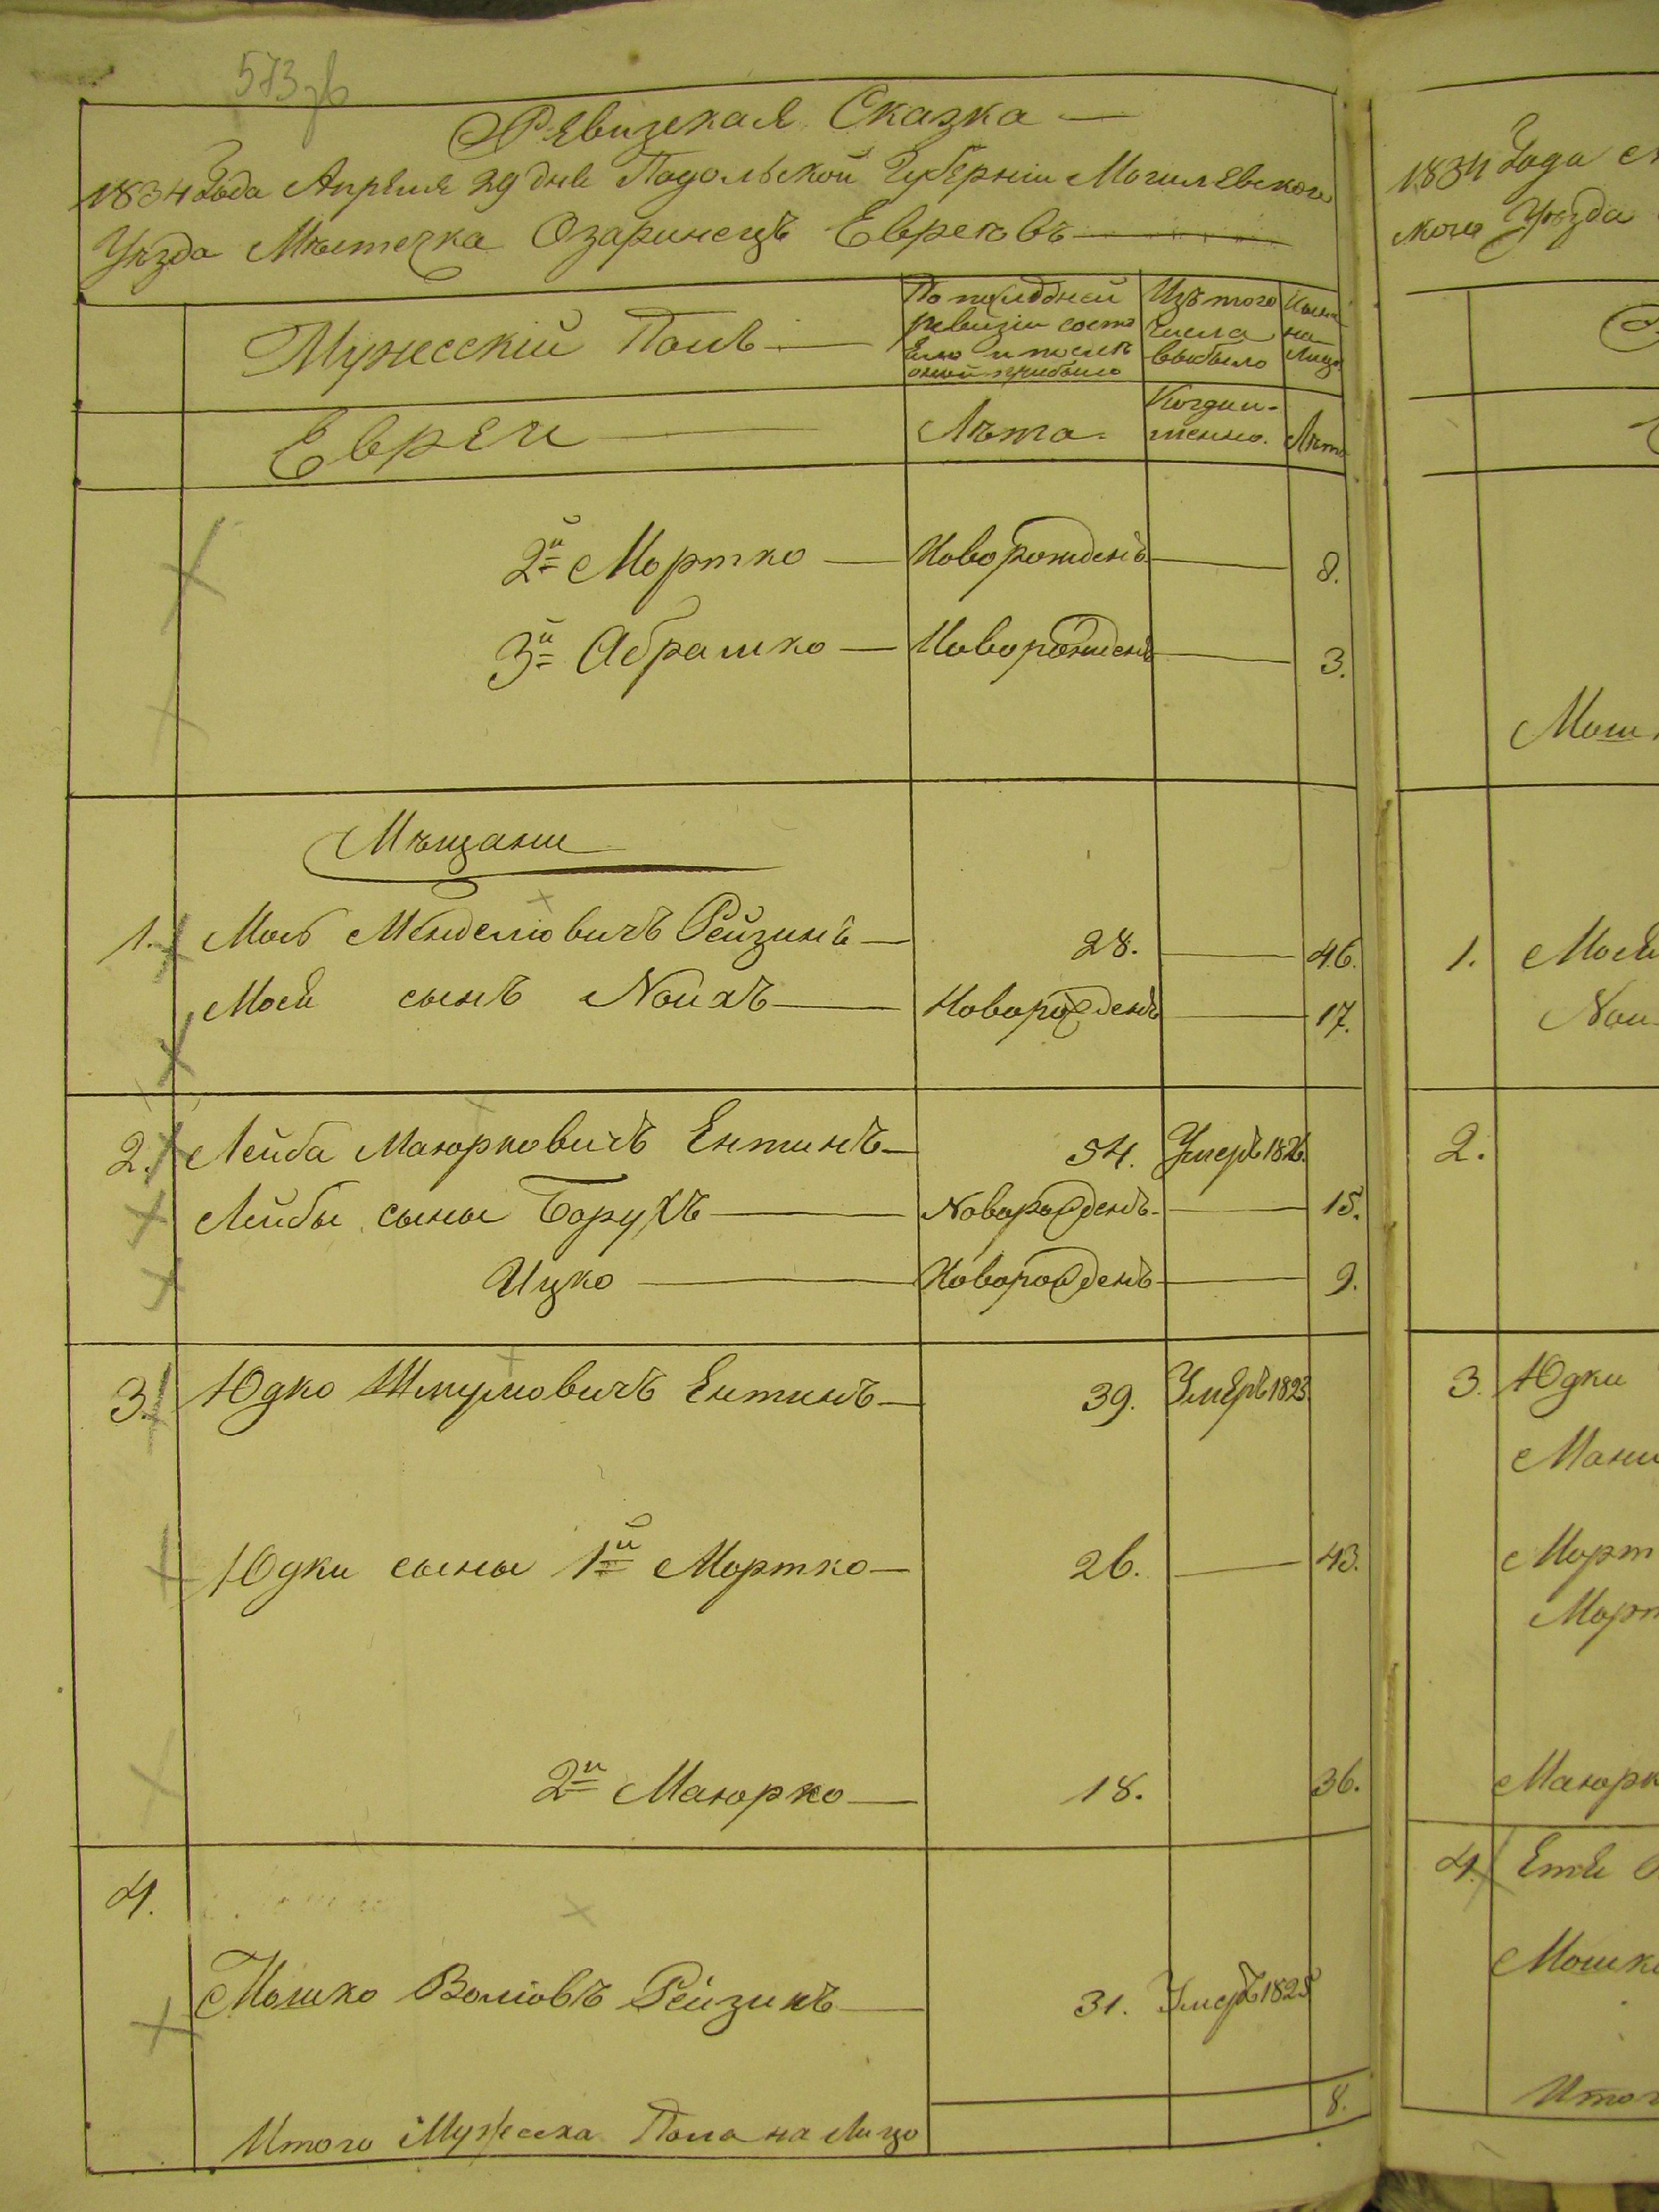 573 об
Ревизская Сказка —
1834 Года Апреля 29 дня Подольской Губерніи Могилевского
Уѣзда Мѣстечка Озаринецъ Евреевъ
Мужескій Полъ — По последней ревизіи состояло и после оной прибыло Изъ того числа выбыло Ныне на Лицо
Евреи — Лѣта. Когда именно. Лѣта
2й Мортко — Новорожденъ — 8.
3й Абрамко — Новорожденъ — 3.
Мѣщане
1. Мось Менделіовичъ Рейзинъ — 28. — 46.
Мося сынъ Nоихъ — Новорожденъ — 17.
2. Лейба Маюрковичъ Ентинъ — 54. Умеръ 1826.
Лейбы сыны Борухъ — Nоворожденъ — 15.
Ицко — Новорожденъ — 9.
3. Юдко Шмулювичъ Ентинъ — 39. Умеръ 1823.
Юдки сыны 1й Мортко — 26. — 43.
2й Маюрко — 18. 36.
4.
Мошко Волювъ Рейзинъ — 31. Умеръ 1825
Итого Мужеска Пола на Лицо 8.
1834 Года
Уѣзда
1. Мося
2.
3. Юдки
Маюрк
4. Етя